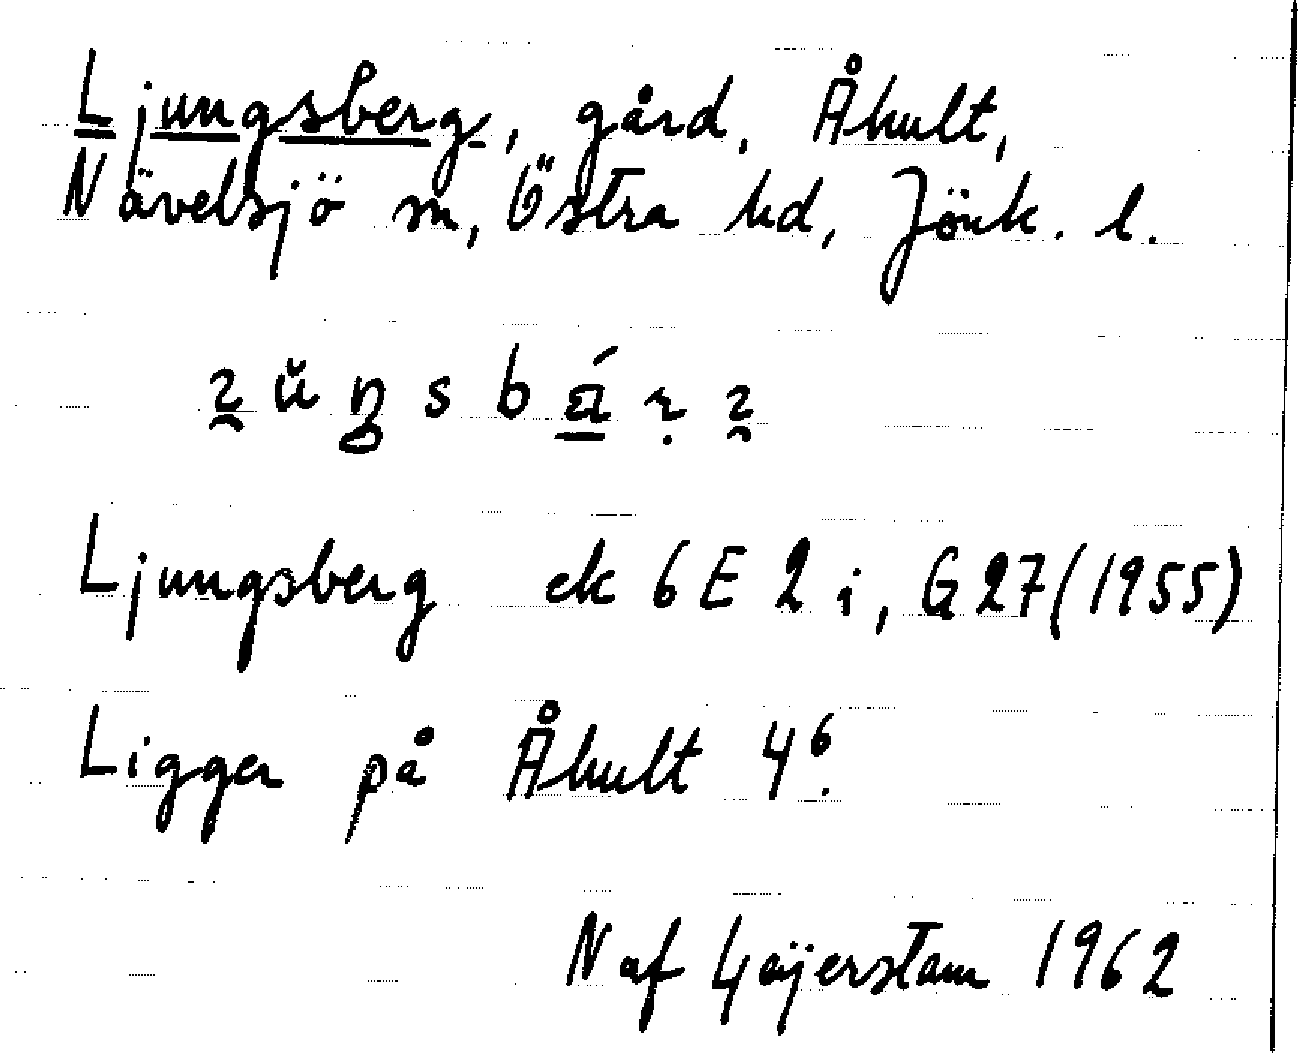 Ljungsberg, gård, Åhult,
Nävelsjö sn, Östra hd, Jönk. l.
Ljungsberg ek 6E 2 i, G27(1955)
Ligger på Åhult 4⁶.
N af Gäijerstam 1962